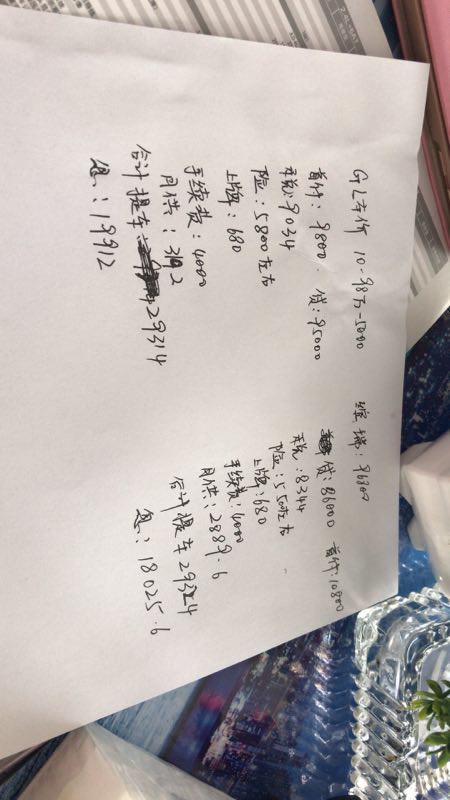 GL车价 10.98万-5000
首付：9800. 贷：95000
税：9034
险：5800左右
上牌：680
手续费：4000
月供：3192
合计提车 29314
息：19912
缤瑞：96800
贷：86000 首付：10800
税：8344
险：5500左右
上牌：680
手续费：4000
月供：2889.6
合计提车 29324
息：18025.6